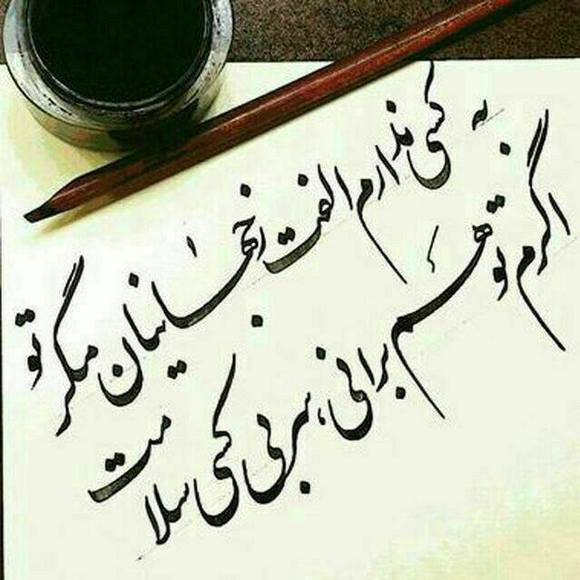 به کسی ندارم الفت ز جهانیان مگر تو
اگرم تو هم برانی، سر بی کسی سلامت